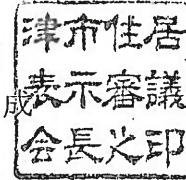 津市住居
表示審議
会長之印
成